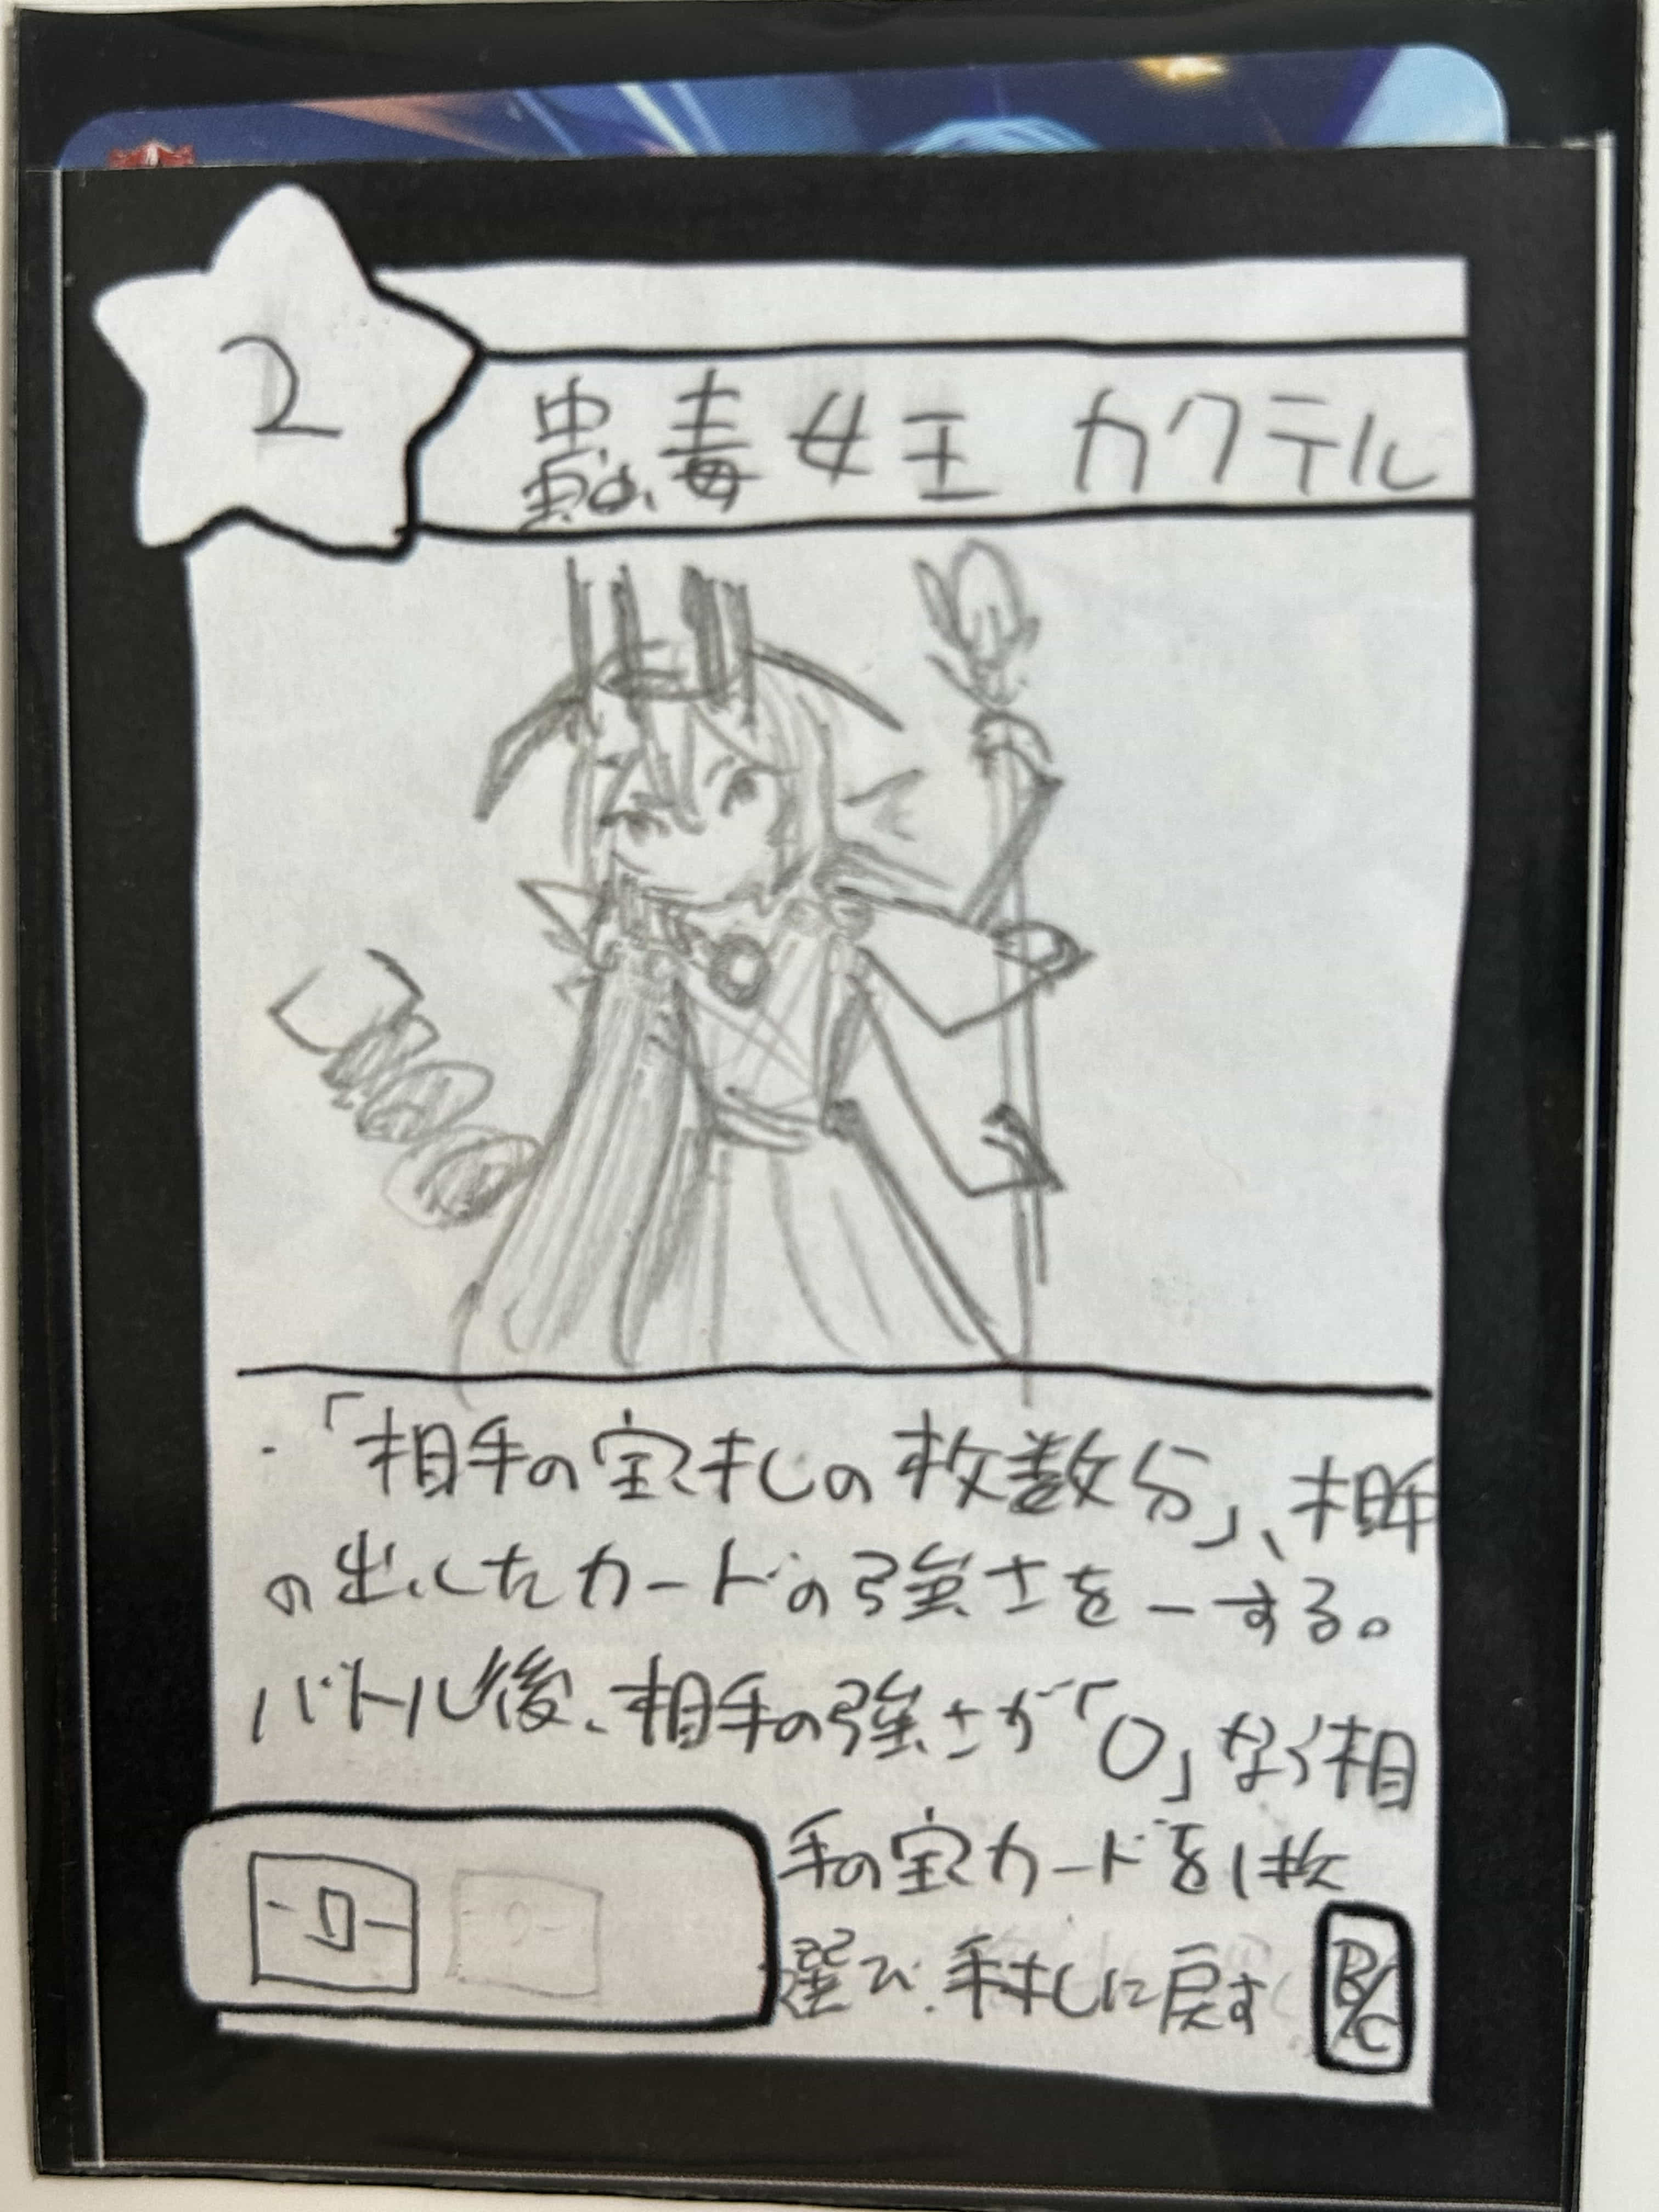 2
蠱毒女王 カクテル
・「相手の宝札の枚数分」、相手
の出したカードの強さを－する。
バトル後、相手の強さが「0」なら相
手の宝カードを1枚
選び、手札に戻す
B/C